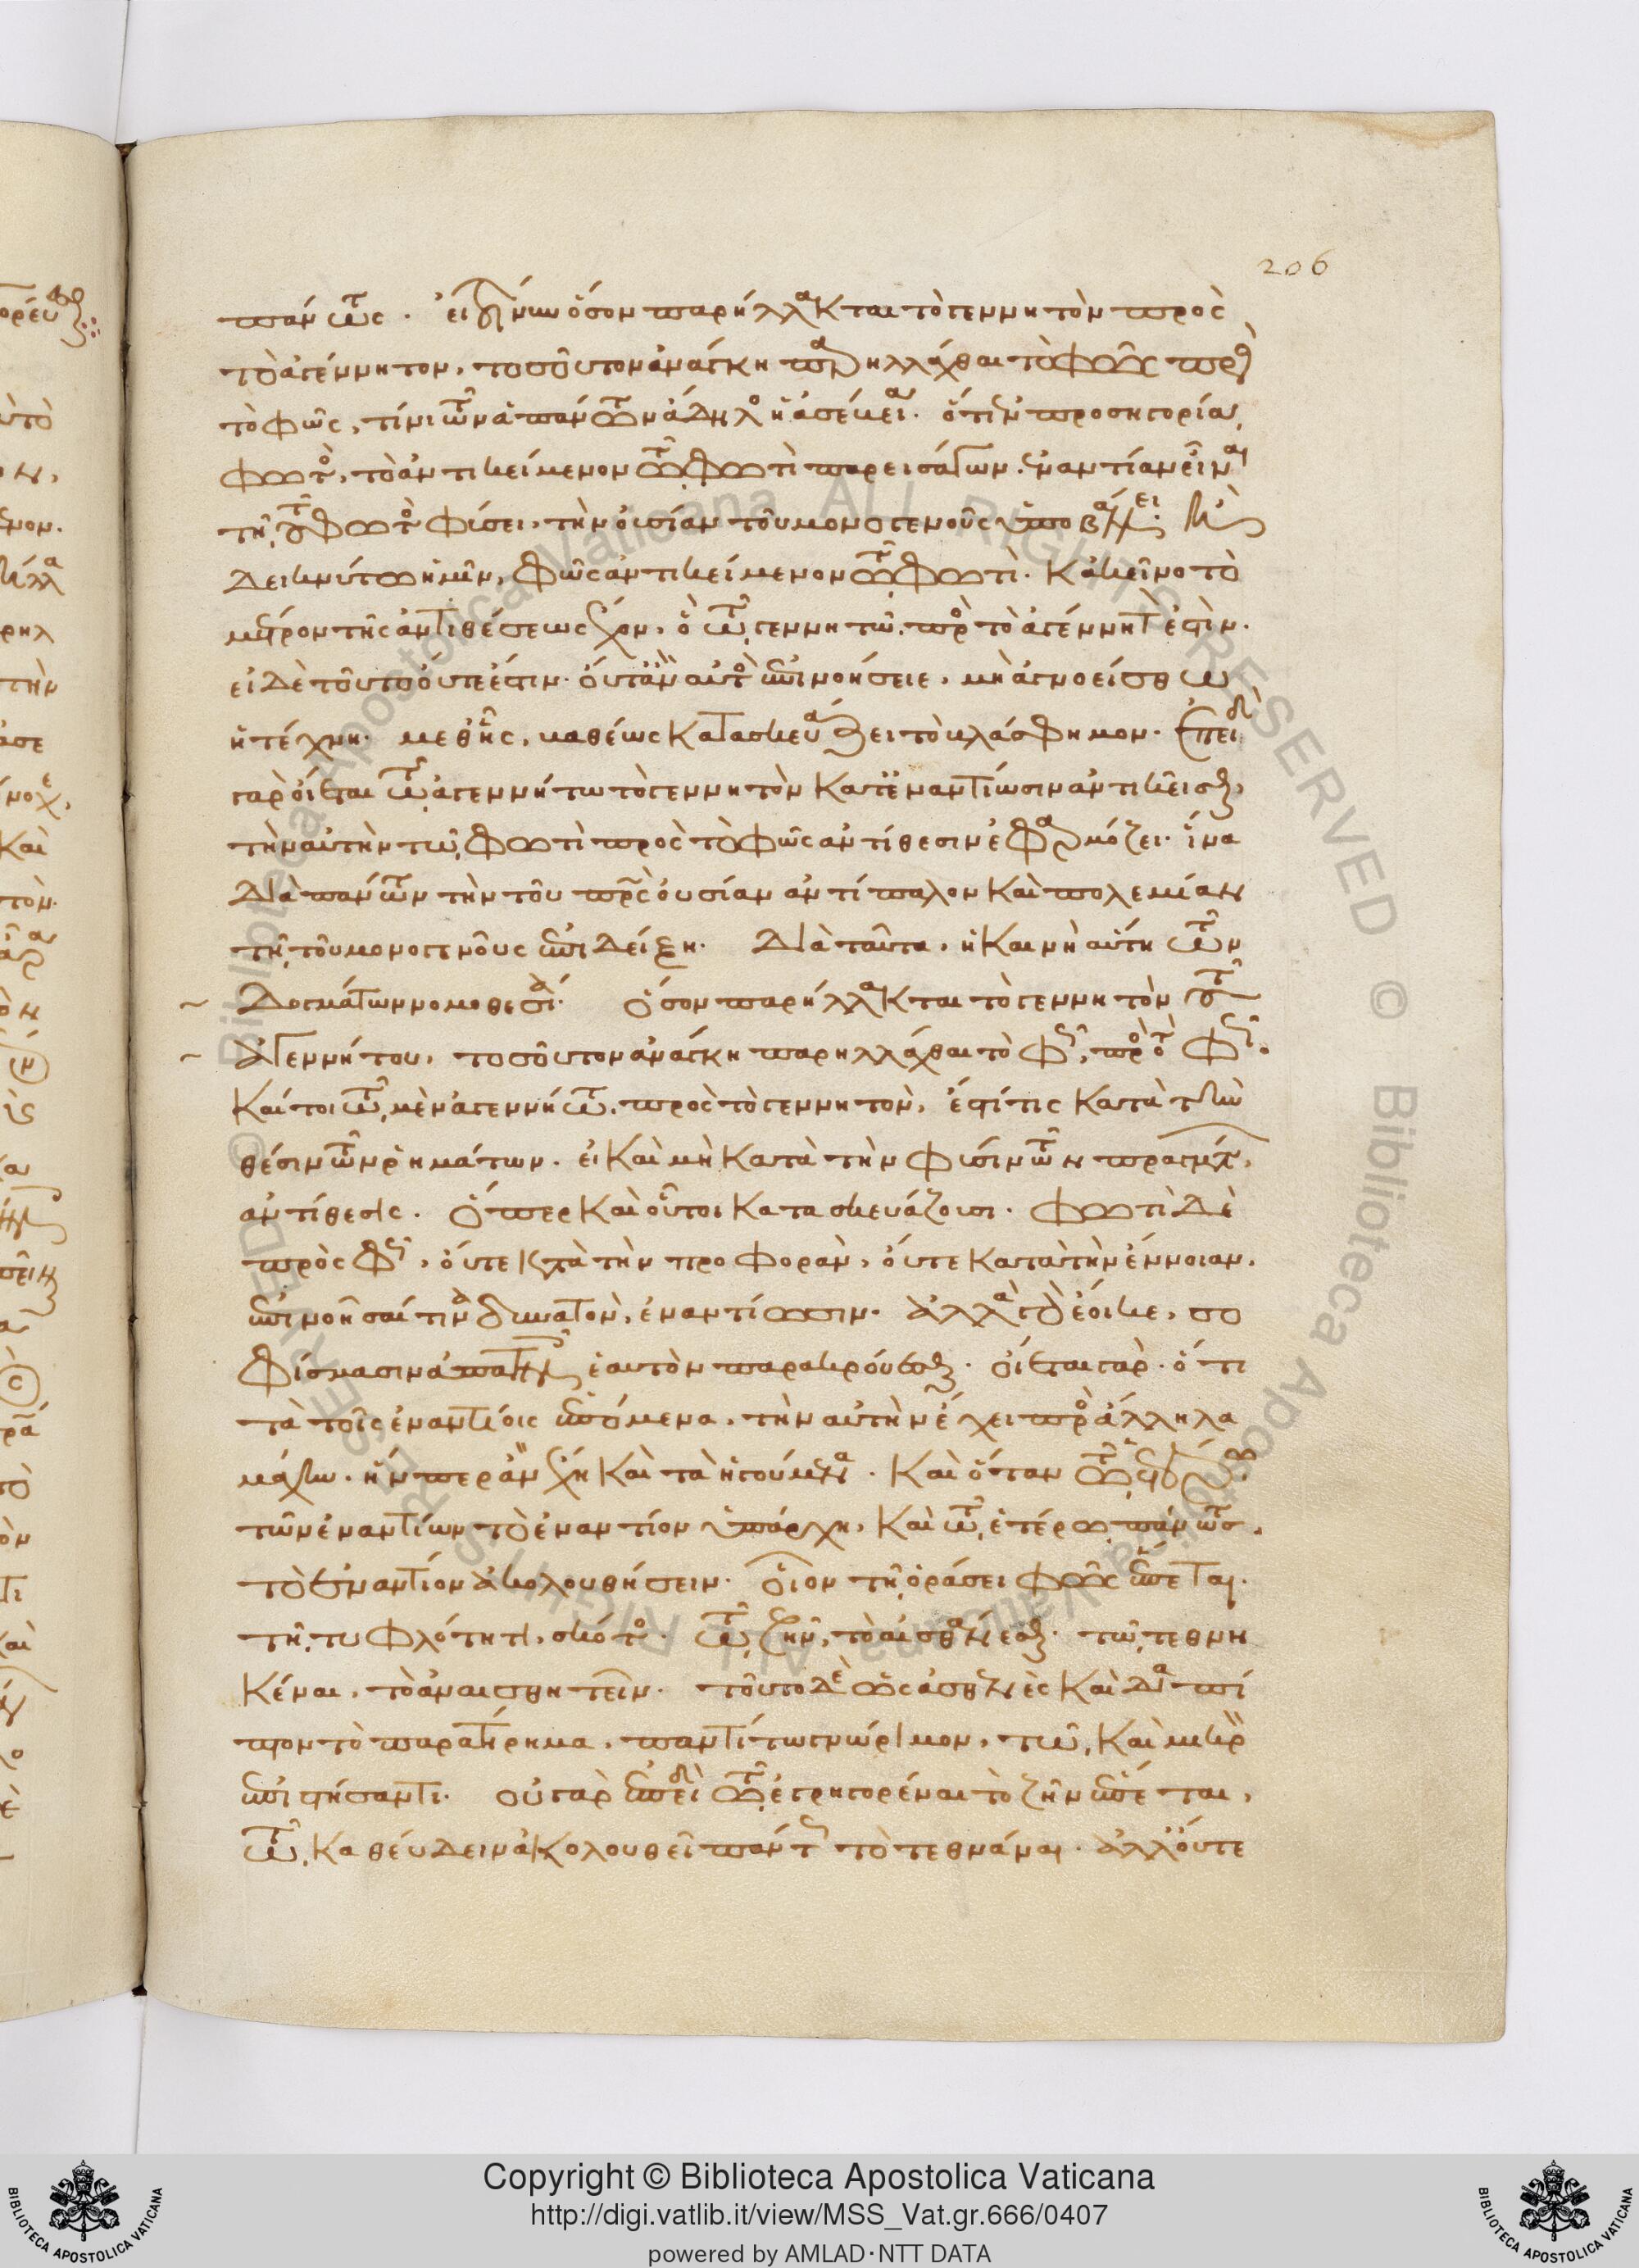 206
πάντως. εἰ γὰρ ὅσον παρήλλακται τὸ γεννητὸν πρὸς
τὸ ἀγέννητον, τοσοῦτον ἀνάγκη παρηλλάχθαι τὸ φῶς πρὸς
τὸ φῶς, τίνι τῶν ἁπάντων ἄδηλος ἡ ἀσέβεια. ὅτι ἐν προσηγορίᾳ
φωτὸς, τὸ ἀντικείμενον τῷ φωτὶ παρεισάγων. ἐναντίαν εἶναι
τῇ τοῦ φωτὸς φύσει, τὴν οὐσίαν τοῦ μονογενοῦς ὑποβάλλει.
δεικνύτω ἡμῖν, φῶς ἀντικείμενον τῷ φωτὶ. κἀκεῖνο τὸ
μέτρον τῆς ἀντιθέσεως ἔχον, ὃ τῷ γεννητῷ πρὸς τὸ ἀγέννητόν ἐστιν.
εἰ δὲ τοῦτο οὔτε ἔστιν. οὔτ' ἂν αὐτὸς ἐπινοήσειε, μὴ ἀγνοείσθω
ἡ τέχνη. μεθ' ἧς, καθέως κατασκευάζει τὸ βλάσφημον. ἐπειδὴ
γὰρ οἴεται τῷ ἀγεννήτῳ τὸ γεννητὸν κατ' ἐναντίωσιν ἀντικεῖσθαι,
τὴν αὐτὴν τῷ φωτὶ πρὸς τὸ φῶς ἀντίθεσιν ἐφαρμόζει. ἵνα
διὰ πάντων τὴν τοῦ πατρὸς οὐσίαν ἀντίπαλον καὶ πολεμίαν
τῇ τοῦ μονογενοῦς ἐπιδείξῃ. διὰ ταῦτα, ἡ καινὴ αὕτη τῶν
δογμάτων νομοθεσία. ὅσον παρήλλακται τὸ γεννητὸν τοῦ
ἀγεννήτου, τοσοῦτον ἀνάγκη παρηλλάχθαι τὸ φῶς, πρὸς τὸ φῶς.
καίτοι τῷ μὲν ἀγεννήτῳ, πρὸς τὸ γεννητὸν, ἔστί τις κατὰ τὴν
θέσιν τῶν ῥημάτων. εἰ καὶ μὴ κατὰ τὴν φύσιν τῶν πραγμάτων,
ἀντίθεσις. ὅπερ καὶ οὗτοι κατασκευάζουσι. φωτὶ δὲ
πρὸς φῶς, οὔτε κατὰ τὴν προφορὰν, οὔτε κατὰ τὴν ἔννοιαν,
ἐπινοῆσαί τινα δυνατὸν, ἐναντίωσιν. ἀλλὰ τὸ ἔοικε, σο
φίσμασιν ἀπάτης ἑαυτὸν παρακρούεσθαι. οἴεται γὰρ. ὅτι
τὰ τοῖς ἐναντίοις ἑπόμενα, τὴν αὐτὴν ἔχει πρὸς ἄλληλα
μάχην. ἥνπερ ἂν ἔχῃ καὶ τὰ ἡγούμενα. καὶ ὅταν τῷ ἑτέρῳ
τῶν ἐναντίων τὸ ἐναντίον ὑπάρχῃ, καὶ τῷ ἑτέρῳ πάντως.
τὸ ἐναντίον ἀκολουθήσειν. οἷον τῇ ὁράσει φῶς ἕπεται.
τῇ τυφλότητι, σκότος. τῷ ζῆν, τὸ αἰσθάνεσθαι. τῷ τεθνη
κέναι, τὸ ἀναισθητεῖν. τοῦτο δὲ ὡς ἀσθενὲς καὶ διαπί
πτον τὸ παρατήρημα, παντί τω γνώριμον, τῷ καὶ μικρὸν
ἐπιστήσαντι. οὐ γὰρ ἐπειδὴ τῷ ἐγρηγορέναι τὸ ζῆν ἕπεται,
τῷ καθεύδειν ἀκολουθεῖ πάντως τὸ τεθνάναι. ἀλλ' οὔτε
Copyright © Biblioteca Apostolica Vaticana
http://digi.vatlib.it/view/MSS_Vat.gr.666/0407
powered by AMLAD·NTT DATA
BIBLIOTECA APOSTOLICA VATICANA
BIBLIOTECA APOSTOLICA VATICANA